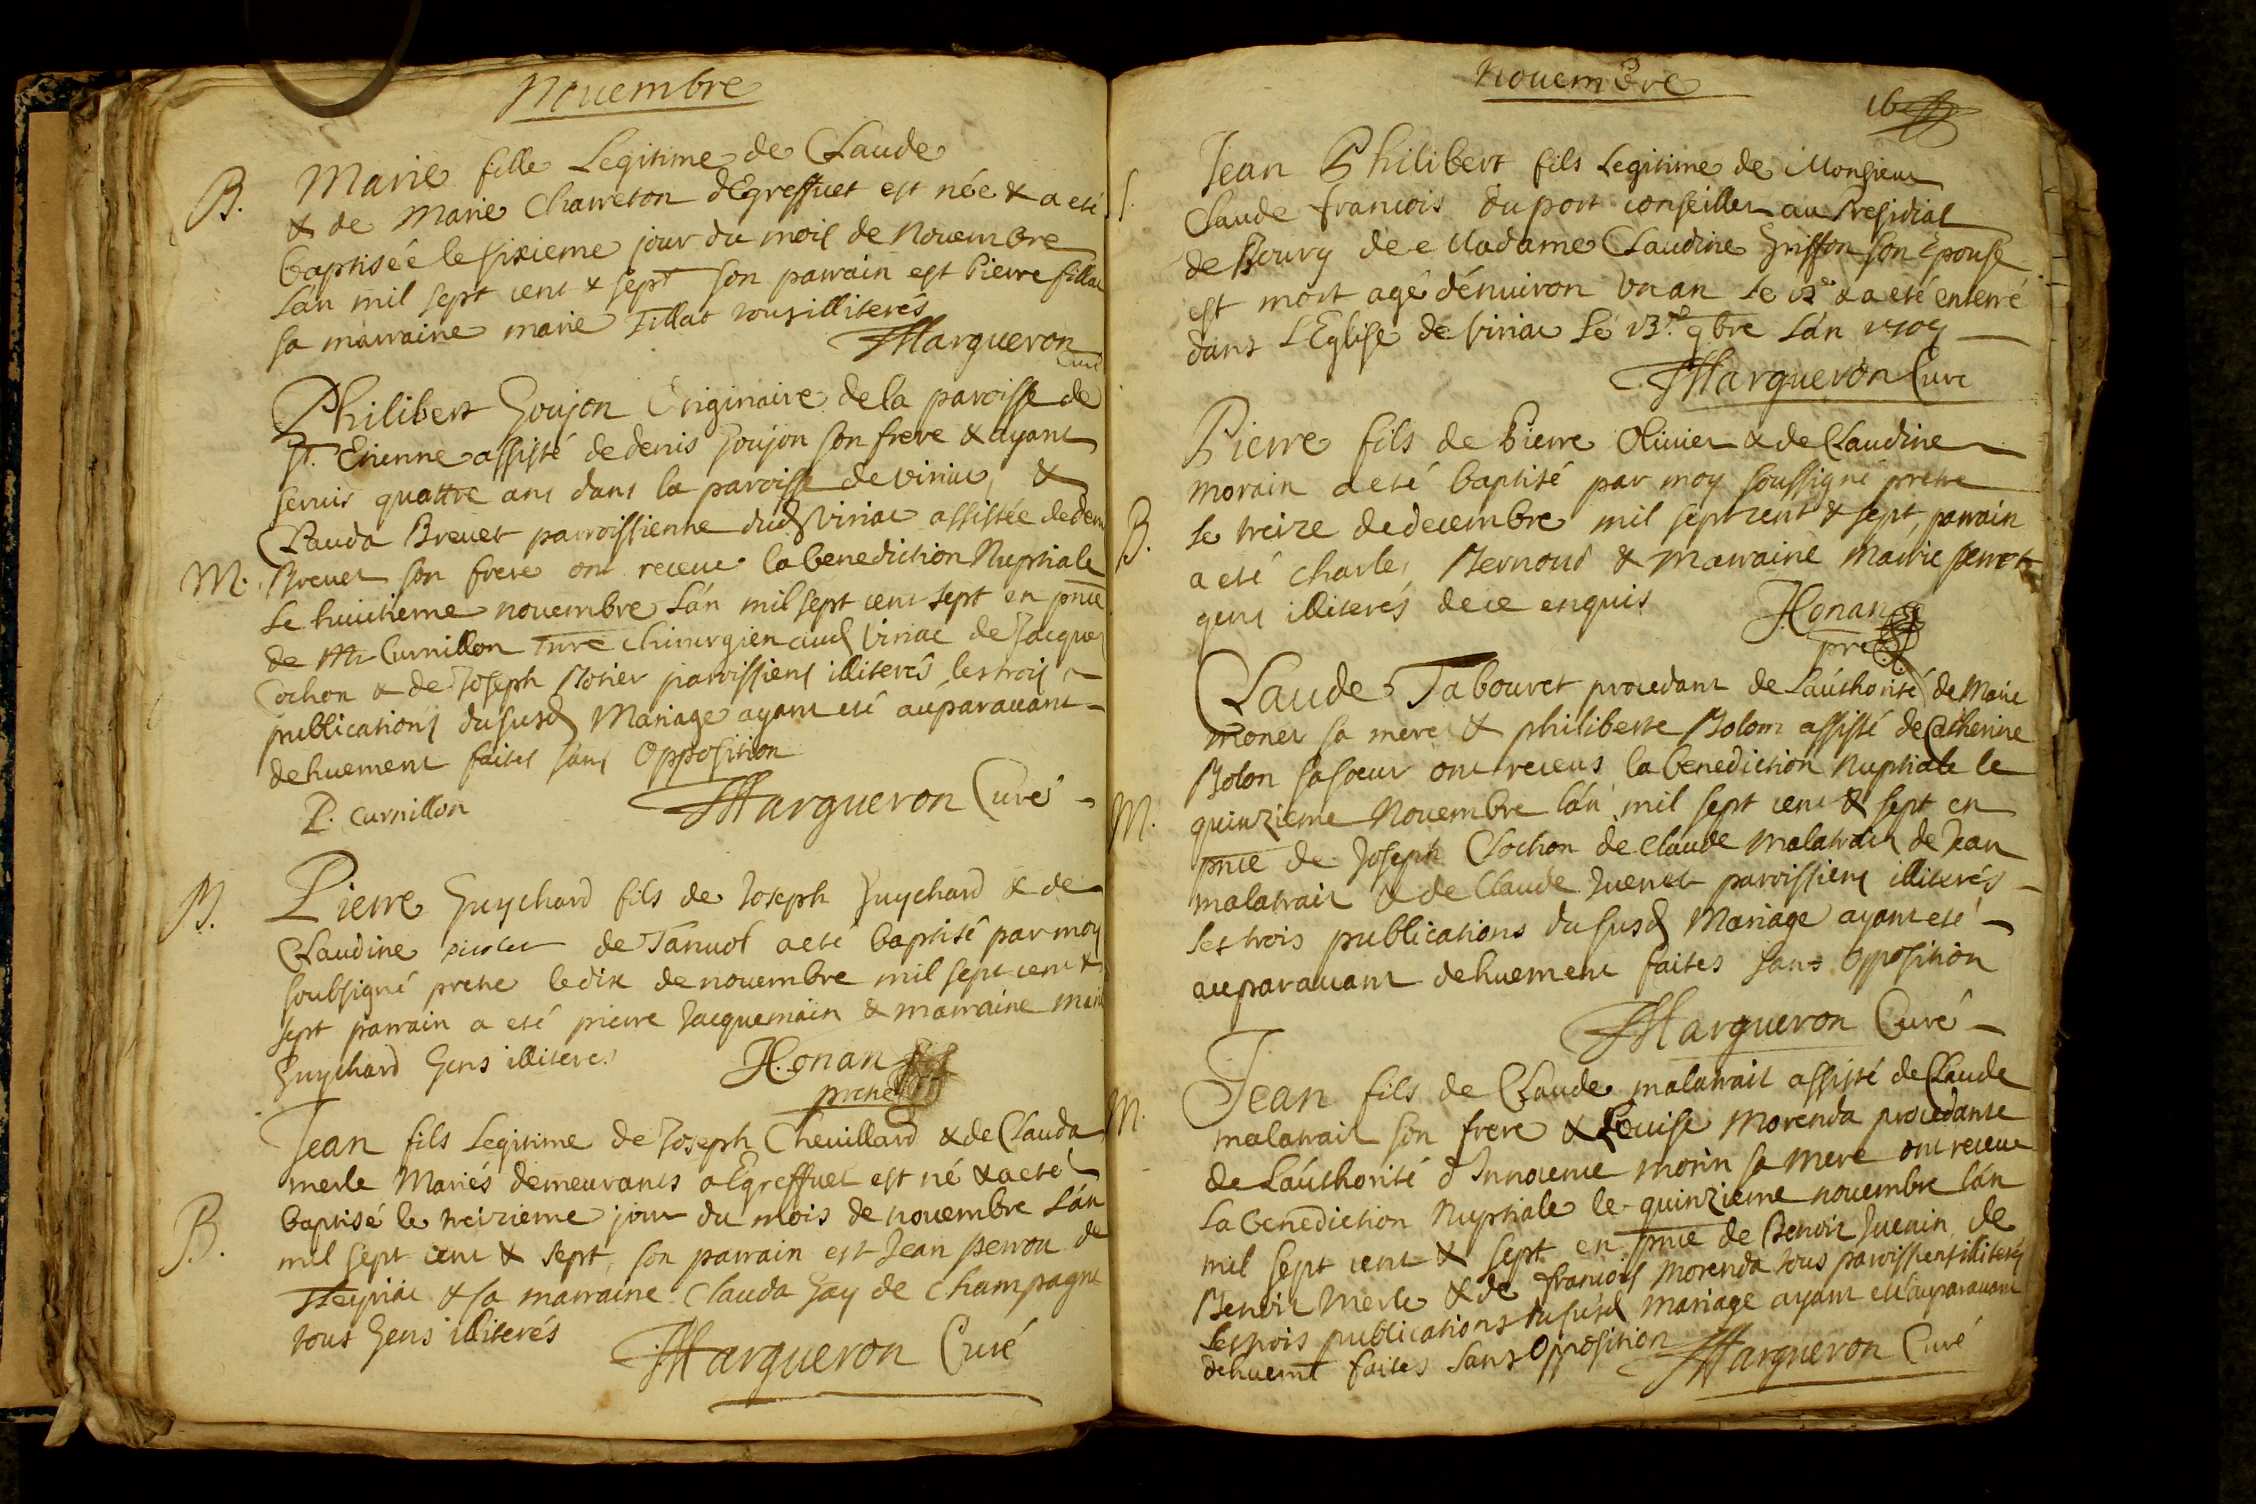 Nouembre
B.
Marie fille Legitime de Claude
& de Marie Charreton d'Egreffuet est née & a eté
baptiséé le sixieme jour du mois de Nouembre
l'án mil sept cent & sept son parrain est Pierre fillat
sa marraine marie Tillat tous illiterés
Margueron
Curé
Philibert Goujon Originaire de la paroisse de
St. Etienne assisté de denis Goujon son frere & ayant
seruis quattre ans dans la paroisse de Viriac, &
Clauda Breuet parroissienne dud Viriac assistée de denis
M.
Breuet son frere ont receue la benediction Nuptiale
le huitieme nouembre l'án mil sept cent sept en pnce
de Mr Curnillon Mre chirurgien aud Viriac de Jacques
Cochon & de Joseph Rotier paroissiens illiterés les trois
publications du susd Mariage ayant eté auparauant
dehuement faites sans Opposition
P. Curnillon
Margueron Curé
B.
Pierre Guychard fils de Joseph Guychard & de
Claudine de Tanuol a eté baptisé par moy
soubsigné pretre le dix de nouembre mil sept cent &
sept parrain a eté pierre Jacquemain & marraine marie
Guychard Gens illiteres
Honan
pretre
Jean fils Legitime de Joseph Cheuillard & de Clauda
merle Mariés demeurants a Egreffuet est né & a eté
B.
baptisé le treizieme jour du mois de nouembre L'án
mil sept cent & sept, son parrain est Jean perrou de
& sa marraine Clauda Gay de Champagne
tous Gens illiterés
Margueron Curé
Nouembre
16
S.
Jean Philibert fils Legitime de Monsieur
Claude francois Duport conseiller au Presidial
de Bourg de & Madame Claudine Griffon son Epouse
est mort agé d'énuiron Vn an le 12e & a eté enterré
dans L'Eglise de Viriac le 13.me 9bre L'án 1707
Margueron Curé
Pierre fils de Pierre Oliuier & de Claudine
morain a eté baptisé par moy soussigné pretre
B.
le treize de decembre mil sept cent & sept, parrain
a eté charles Bernoud & marraine Marie perret
gens illiterés de ce enquis
Honan
pre
Claude Tabouret procedant de L'authorité de Marie
monet sa mere & philiberte Bolom assisté de Catherine
Bolon sa soeur ont receus la benediction Nuptiale le
M.
quinzieme Nouembre l'án mil sept cent & sept en
pnce de Joseph Clochon de Claude malatrait de Jean
malatrait & de Claude Juenet paroissiens illiterés
les trois publications du susd Mariage ayant eté
auparauant dehuement faites sans Opposition
Margueron Curé
M.
Jean fils de Claude malatrait assisté de Claude
malatrait son frere & Louise Morenda procedante
de L'authorité d'Innocence morin sa mere ont receue
la benediction Nuptiale le quinzieme nouembre l'án
mil sept cent & sept en pnce de Benoit Juenin de
Benoit Merle & de francois Morenda tous paroissiens illiterés
les trois publications du susd Mariage ayant eté auparauant
dehuemt faites sans Opposition
Margueron Curé